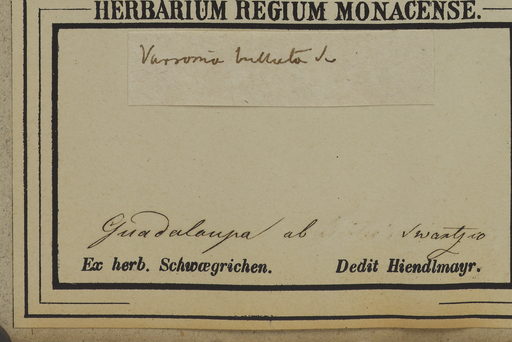 HERBARIUM REGIUM MONACENSE.
Varronia bullata
Guadaloupa ab Swartzio
Ex herb. Schwægrichen. Dedit Hiendlmayr.